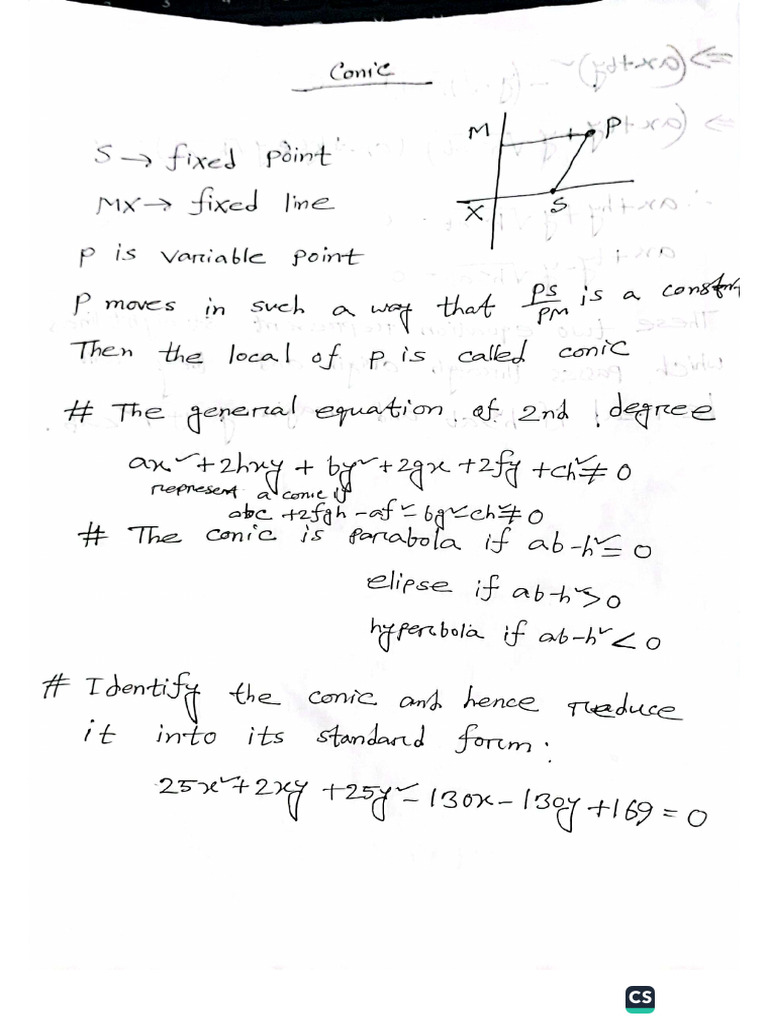 Conic
M P
X S
S → fixed point
MX → fixed line
P is variable point
P moves in such a way that PS/PM is a
Then the local of P is called conic
# The general equation of 2nd degree
ax² + 2hxy + by² + 2gx + 2fy + ch² ≠ 0
represent a conic if
abc + 2fgh - af² - bg² - ch² ≠ 0
# The conic is parabola if ab-h² = 0
elipse if ab-h² > 0
hyperbola if ab-h² < 0
# Identify the conic and hence reduce
it into its standard form:
25x² + 2xy + 25y² - 130x - 130y + 169 = 0
CS